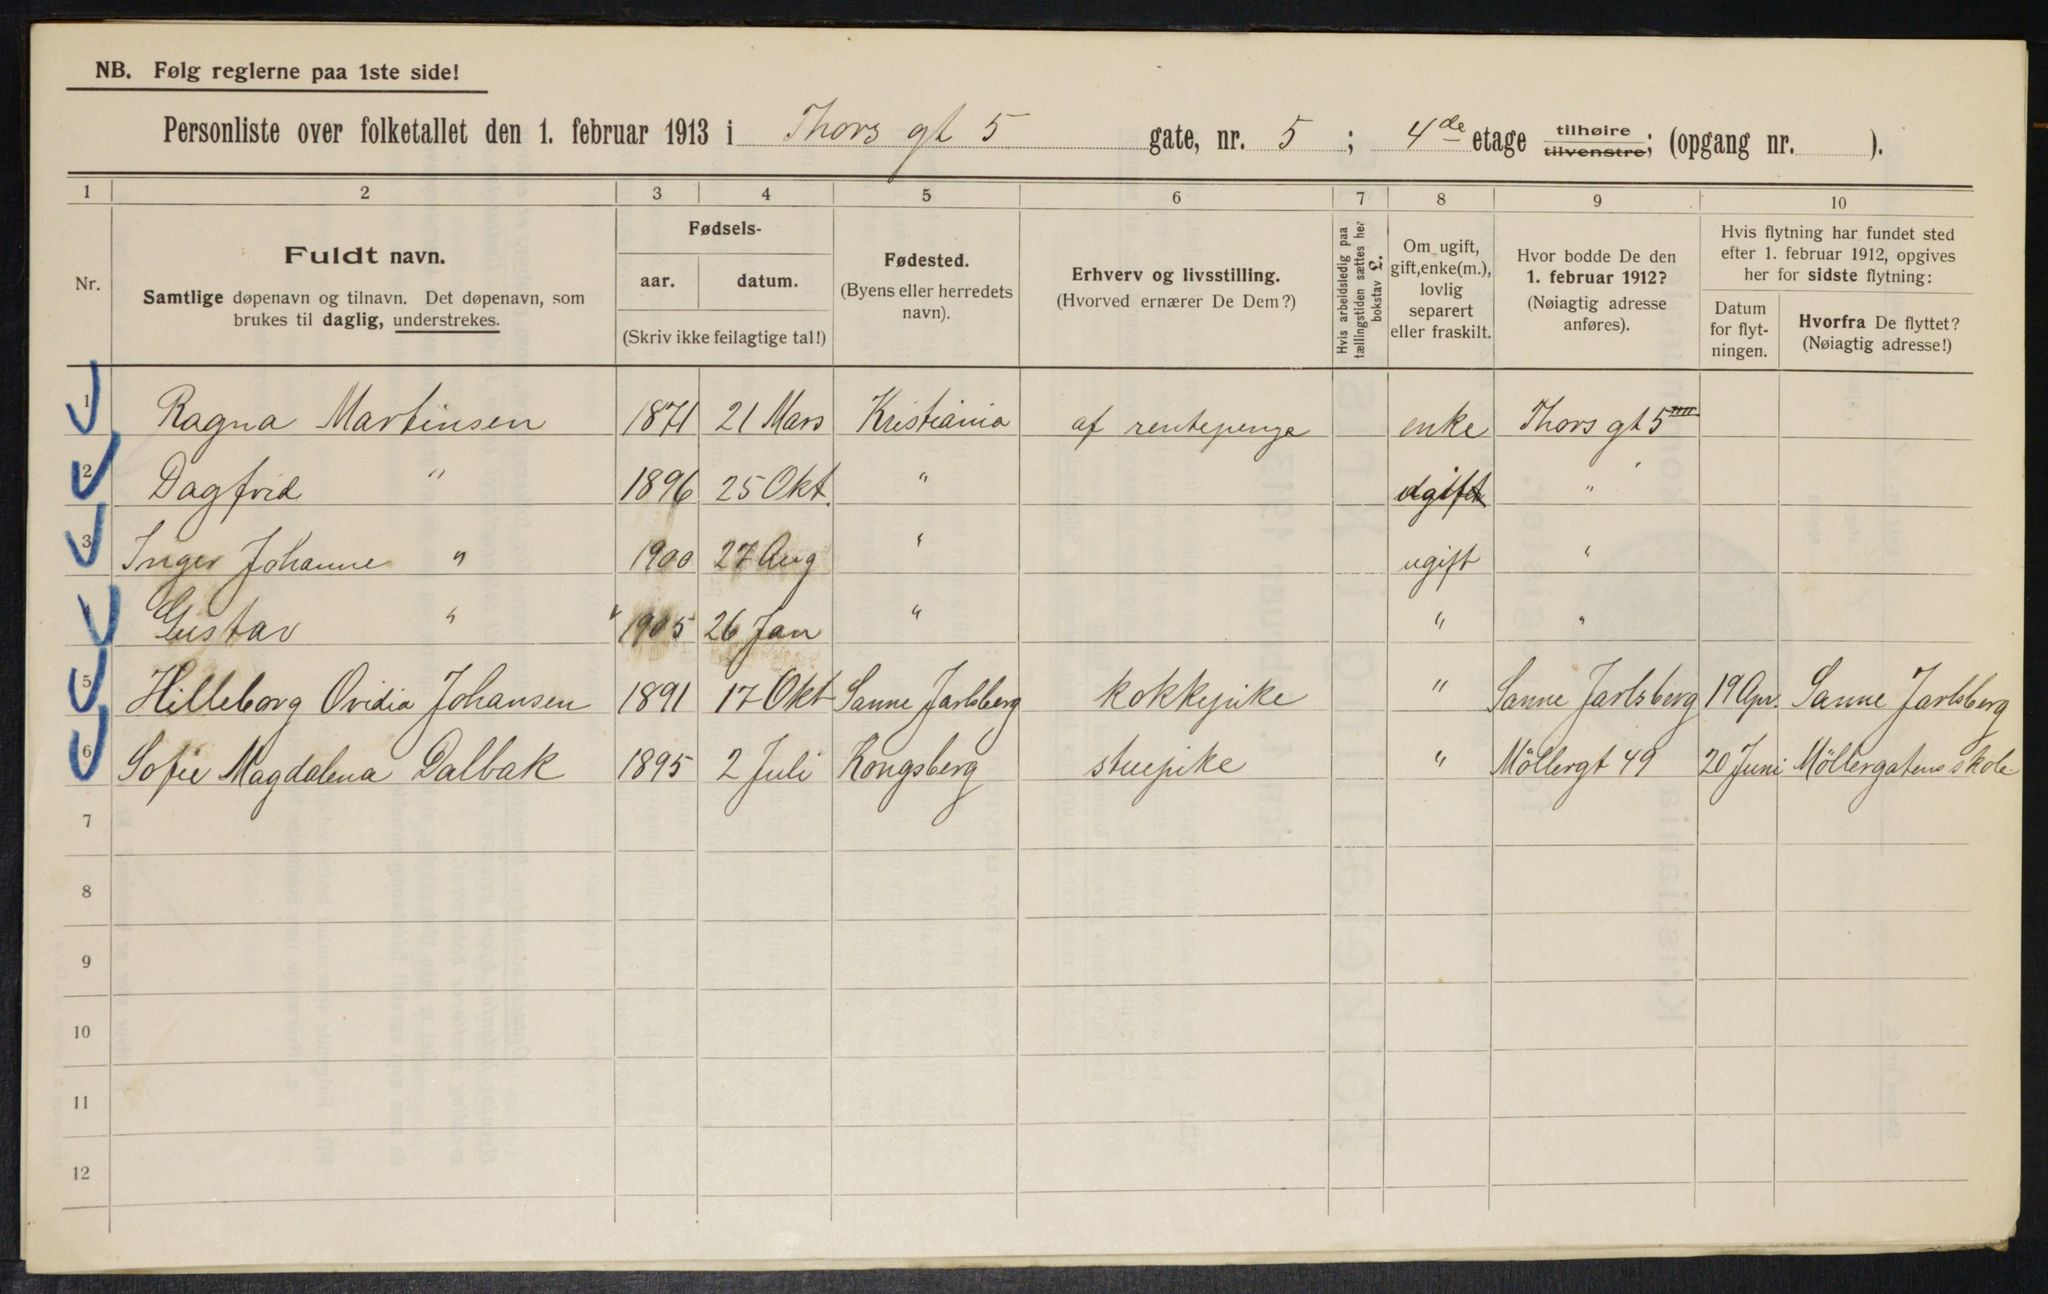 NB. Følg reglerne paa 1ste side!
Personliste over folketallet den 1. februar 1913 i Thors gt 5 gate, nr. 5 ; 4de etage tilhøire tilvenstre; (opgang nr. ).
1 2 3 4 5 6 7 8 9 10
Nr.
Fuldt navn.
Samtlige døpenavn og tilnavn. Det døpenavn, som
brukes til daglig, understrekes.
Fødsels-
aar. datum.
(Skriv ikke feilagtige tal!)
Fødested.
(Byens eller herredets
navn).
Erhverv og livsstilling.
(Hvorved ernærer De Dem?)
Hvis arbeidsledig paa
tællingstiden sættes her
bokstav L.
Om ugift,
gift, enke(m.),
lovlig
separert
eller fraskilt.
Hvor bodde De den
1. februar 1912?
(Nøiagtig adresse
anføres).
Hvis flytning har fundet sted
efter 1. februar 1912, opgives
her for sidste flytning:
Datum
for flyt-
ningen.
Hvorfra De flyttet?
(Nøiagtig adresse!)
1 Ragna Martinsen 1871 21 Mars Kristiania af rentepenge enke Thors gt 5
2 Dagfrid " 1896 25 Okt. " ugift "
3 Inger Johanne " 1900 27 Aug " ugift "
Gustav " " 1905 26 Jan " " "
5 Hilleborg Ovidia Johansen 1891 17 Okt Sanne Jarlsberg kokkepike " Sanne Jarlsberg 19 Apr. Sanne Jarlsberg
6 Sofie Magdalena Dalbak 1895 2 Juli Kongsberg stuepike " Möllergt 49 20 Juni Möllergatens skole
7
8
9
10
11
12